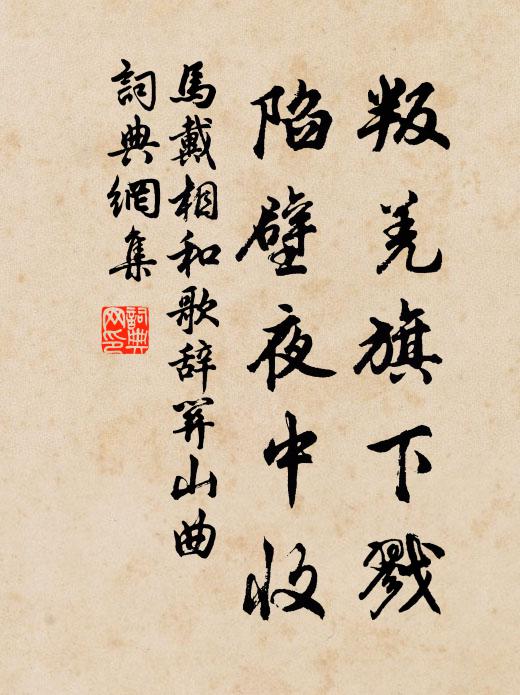 叛羌旗下戮
陷壁夜中收
馬戴相和歌辞關山曲
詞典網集
詞典网印